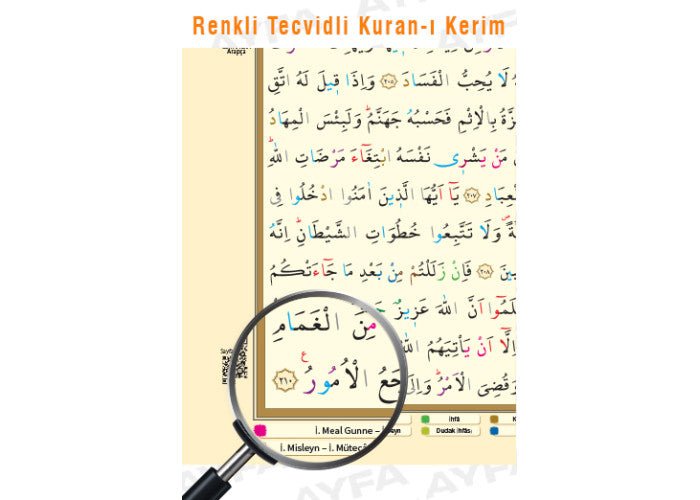 Renkli Tecvidli Kuran-ı Kerim
Arapça
لَا يُحِبُّ الْفَسَادَ ﴿٢٠٥﴾ وَاِذَا قٖيلَ لَهُ اتَّقِ
بِالْاِثْمِ فَحَسْبُهُ جَهَنَّمُ وَلَبِئْسَ الْمِهَادُ
مَنْ يَشْرٖى نَفْسَهُ ابْتِغَٓاءَ مَرْضَاتِ اللّٰهِ
﴿٢٠٧﴾ يَٓا اَيُّهَا الَّذٖينَ اٰمَنُوا ادْخُلُوا فِى
وَلَا تَتَّبِعُوا خُطُوَاتِ الشَّيْطَانِ اِنَّهُ
﴿٢٠٨﴾ فَاِنْ زَلَلْتُمْ مِنْ بَعْدِ مَا جَٓاءَتْكُمُ
اَنَّ اللّٰهَ عَزٖيزٌ
اِلَّٓا اَنْ يَاْتِيَهُمُ اللّٰهُ
مِنَ الْغَمَامِ
وَقُضِىَ الْاَمْرُ وَاِلَى
الْاُمُورُ ﴿٢١٠﴾
İ. Meal Gunne –
İhfâ
Dudak İhfâsı
İ. Misleyn – İ.
AYFA